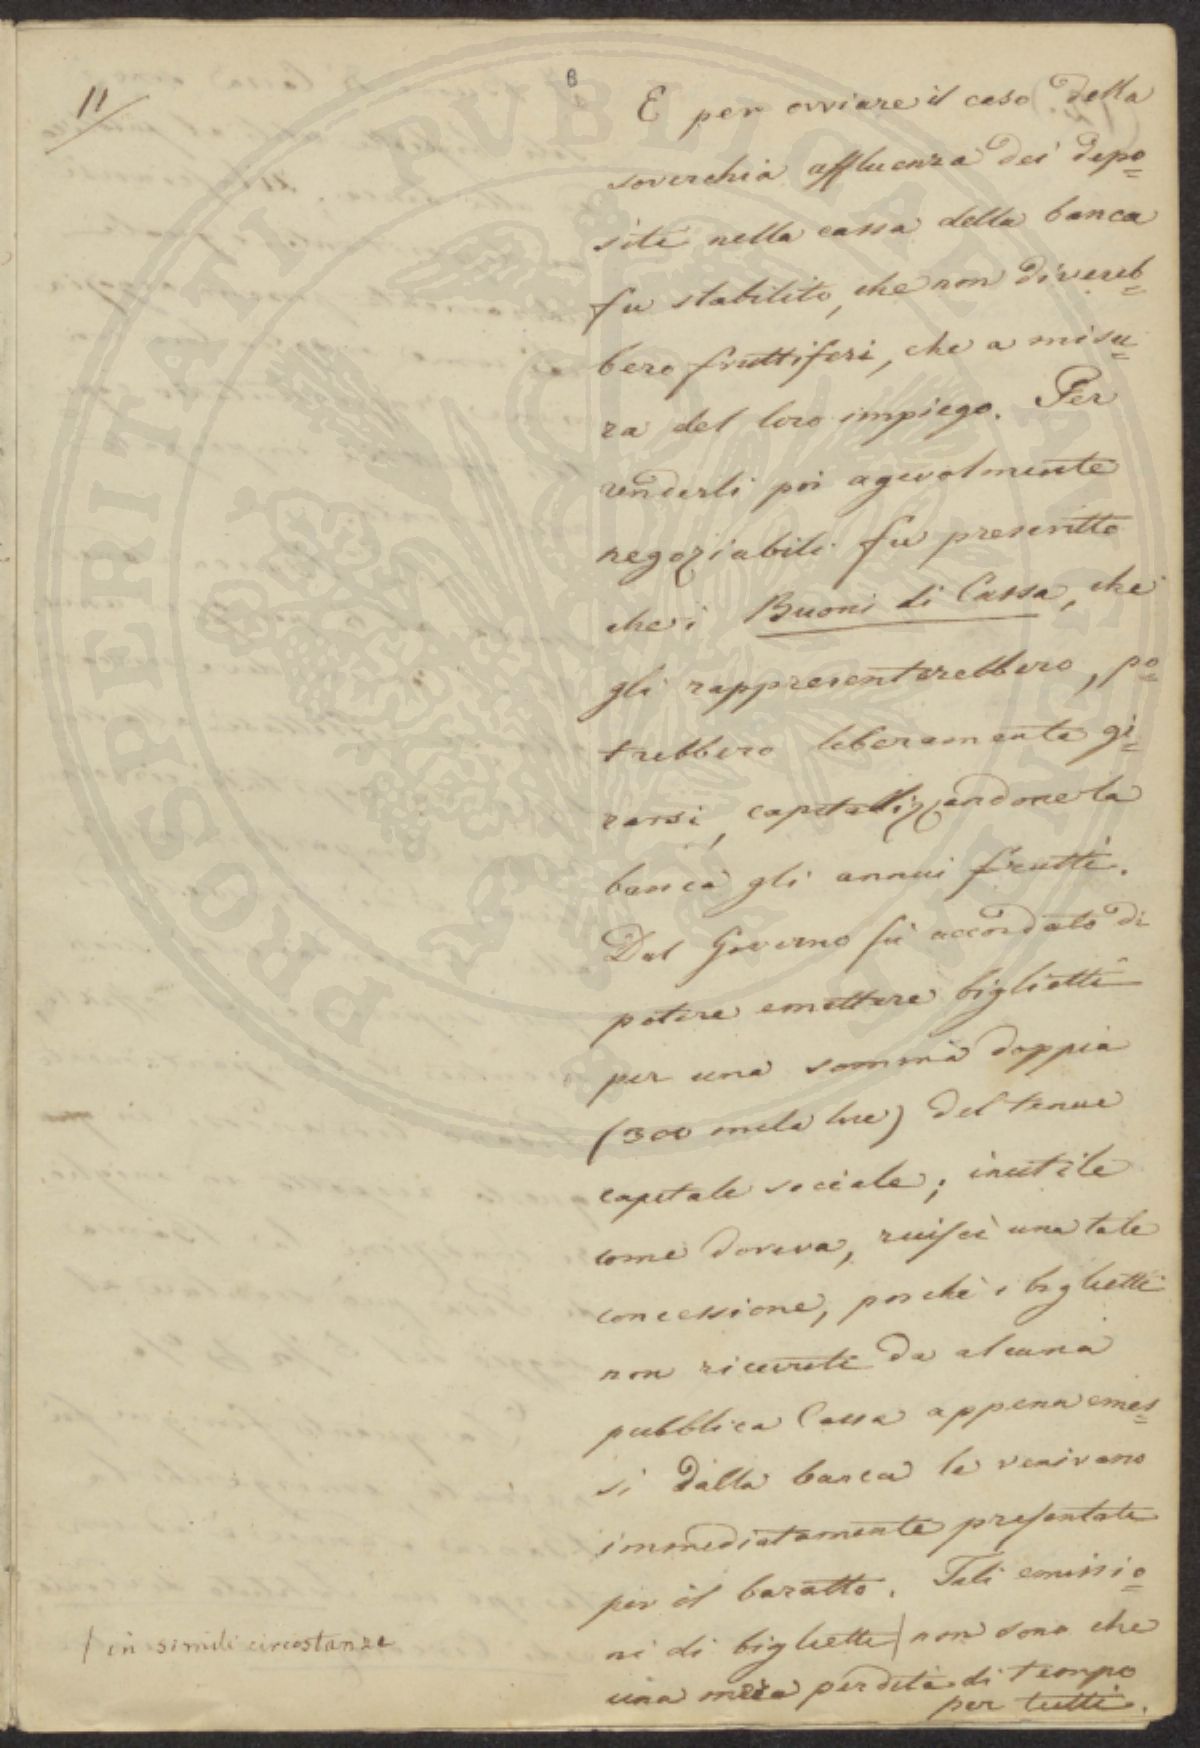 11
6
E per ovviare il caso della
soverchia affluenza dei depo=
siti nella cassa della banca
fu stabilito, che non divereb=
bero fruttiferi, che a misu=
ra del loro impiego. Per
renderli poi agevolmente
negoziabili fu prescritto
che i Buoni di Cassa, che
gli rappresenterebbero, po=
trebbero liberamente gi=
rarsi, capitalizzandone la
banca gli annui frutti.
Dal Governo fù accordato di
potere emettere biglietti
per una somma doppia
(300 mila lire) del tenue
capitale sociale; inutile
come doveva, riuscì una tale
concessione, poichè i biglietti
non ricevuti da alcuna
pubblica Cassa appena emes=
si dalla banca le venivano
immediatamente presentati
per il baratto. Tali emissio=
ni di biglietti/ non sono che
/ in simili circostanze
una mera perdita di tempo
per tutti.
PROSPERITATI PUBLICAE